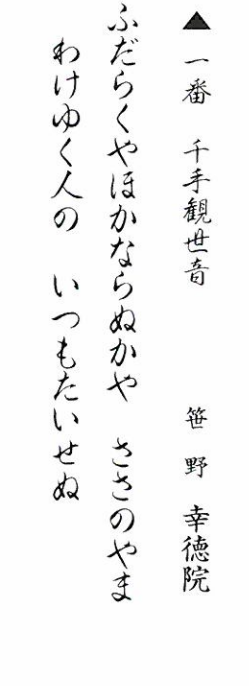 ▲一番 千手観世音 笹野 幸徳院
ふだらくやほかならぬかや ささのやま
わけゆく人の いつもたいせぬ